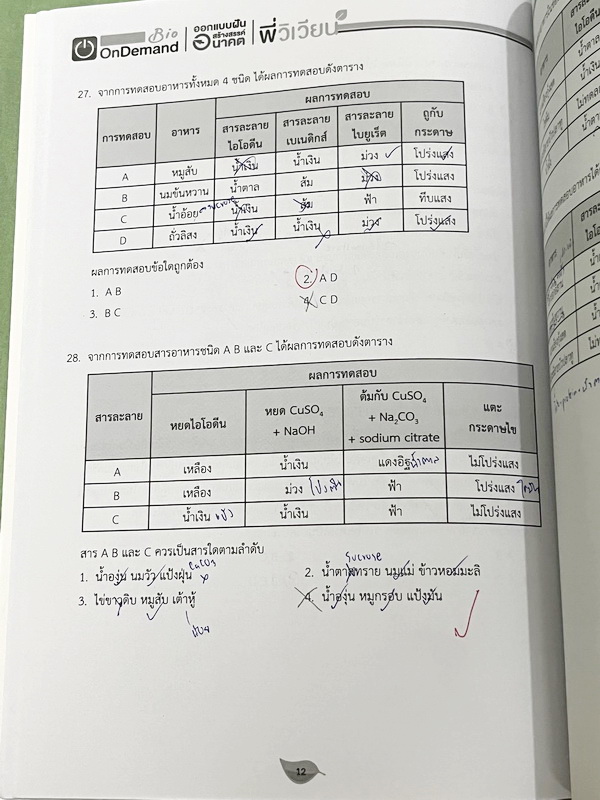 Bio
OnDemand
ออกแบบฝัน
สร้างสรรค์
อนาคต
พี่วิเวียน
27. จากการทดสอบอาหารทั้งหมด 4 ชนิด ได้ผลการทดสอบดังตาราง
การทดสอบ อาหาร ผลการทดสอบ
สารละลายไอโอดีน สารละลายเบเนดิกส์ สารละลายไบยูเร็ต ถูกับกระดาษ
A หมูสับ น้ำเงิน น้ำเงิน ม่วง โปร่งแสง
B นมข้นหวาน น้ำตาล ส้ม ม่วง โปร่งแสง
C น้ำอ้อย sucrose น้ำเงิน ส้ม ฟ้า ทึบแสง
D ถั่วลิสง น้ำเงิน น้ำเงิน ม่วง โปร่งแสง
ผลการทดสอบข้อใดถูกต้อง
1. A B 2. A D
3. B C 4. C D
28. จากการทดสอบสารอาหารชนิด A B และ C ได้ผลการทดสอบดังตาราง
สารละลาย ผลการทดสอบ
หยดไอโอดีน หยด CuSO4 + NaOH ต้มกับ CuSO4 + Na2CO3 + sodium citrate แตะกระดาษไข
A เหลือง น้ำเงิน แดงอิฐ น้ำตาล ไม่โปร่งแสง
B เหลือง ม่วง โปรตีน ฟ้า โปร่งแสง ไขมัน
C น้ำเงิน แป้ง น้ำเงิน ฟ้า ไม่โปร่งแสง
สาร A B และ C ควรเป็นสารใดตามลำดับ
1. น้ำองุ่น นมวัว แป้งฝุ่น 2. น้ำตาลทราย นมแม่ ข้าวหอมมะลิ
sucrose
3. ไข่ขาวดิบ หมูสับ เต้าหู้ 4. น้ำองุ่น หมูกรอบ แป้งมัน
12